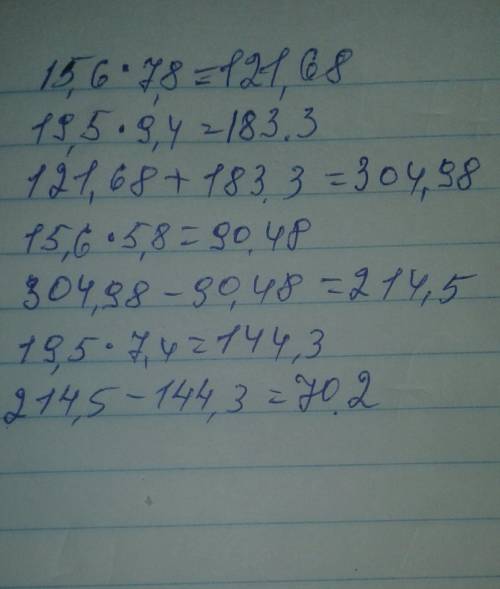 15,6 · 7,8 = 121,68
19,5 · 9,4 = 183.3
121,68 + 183.3 = 304,98
15,6 · 5,8 = 90.48
304,98 - 90,48 = 214,5
19,5 · 7,4 = 144,3
214,5 - 144,3 = 70.2